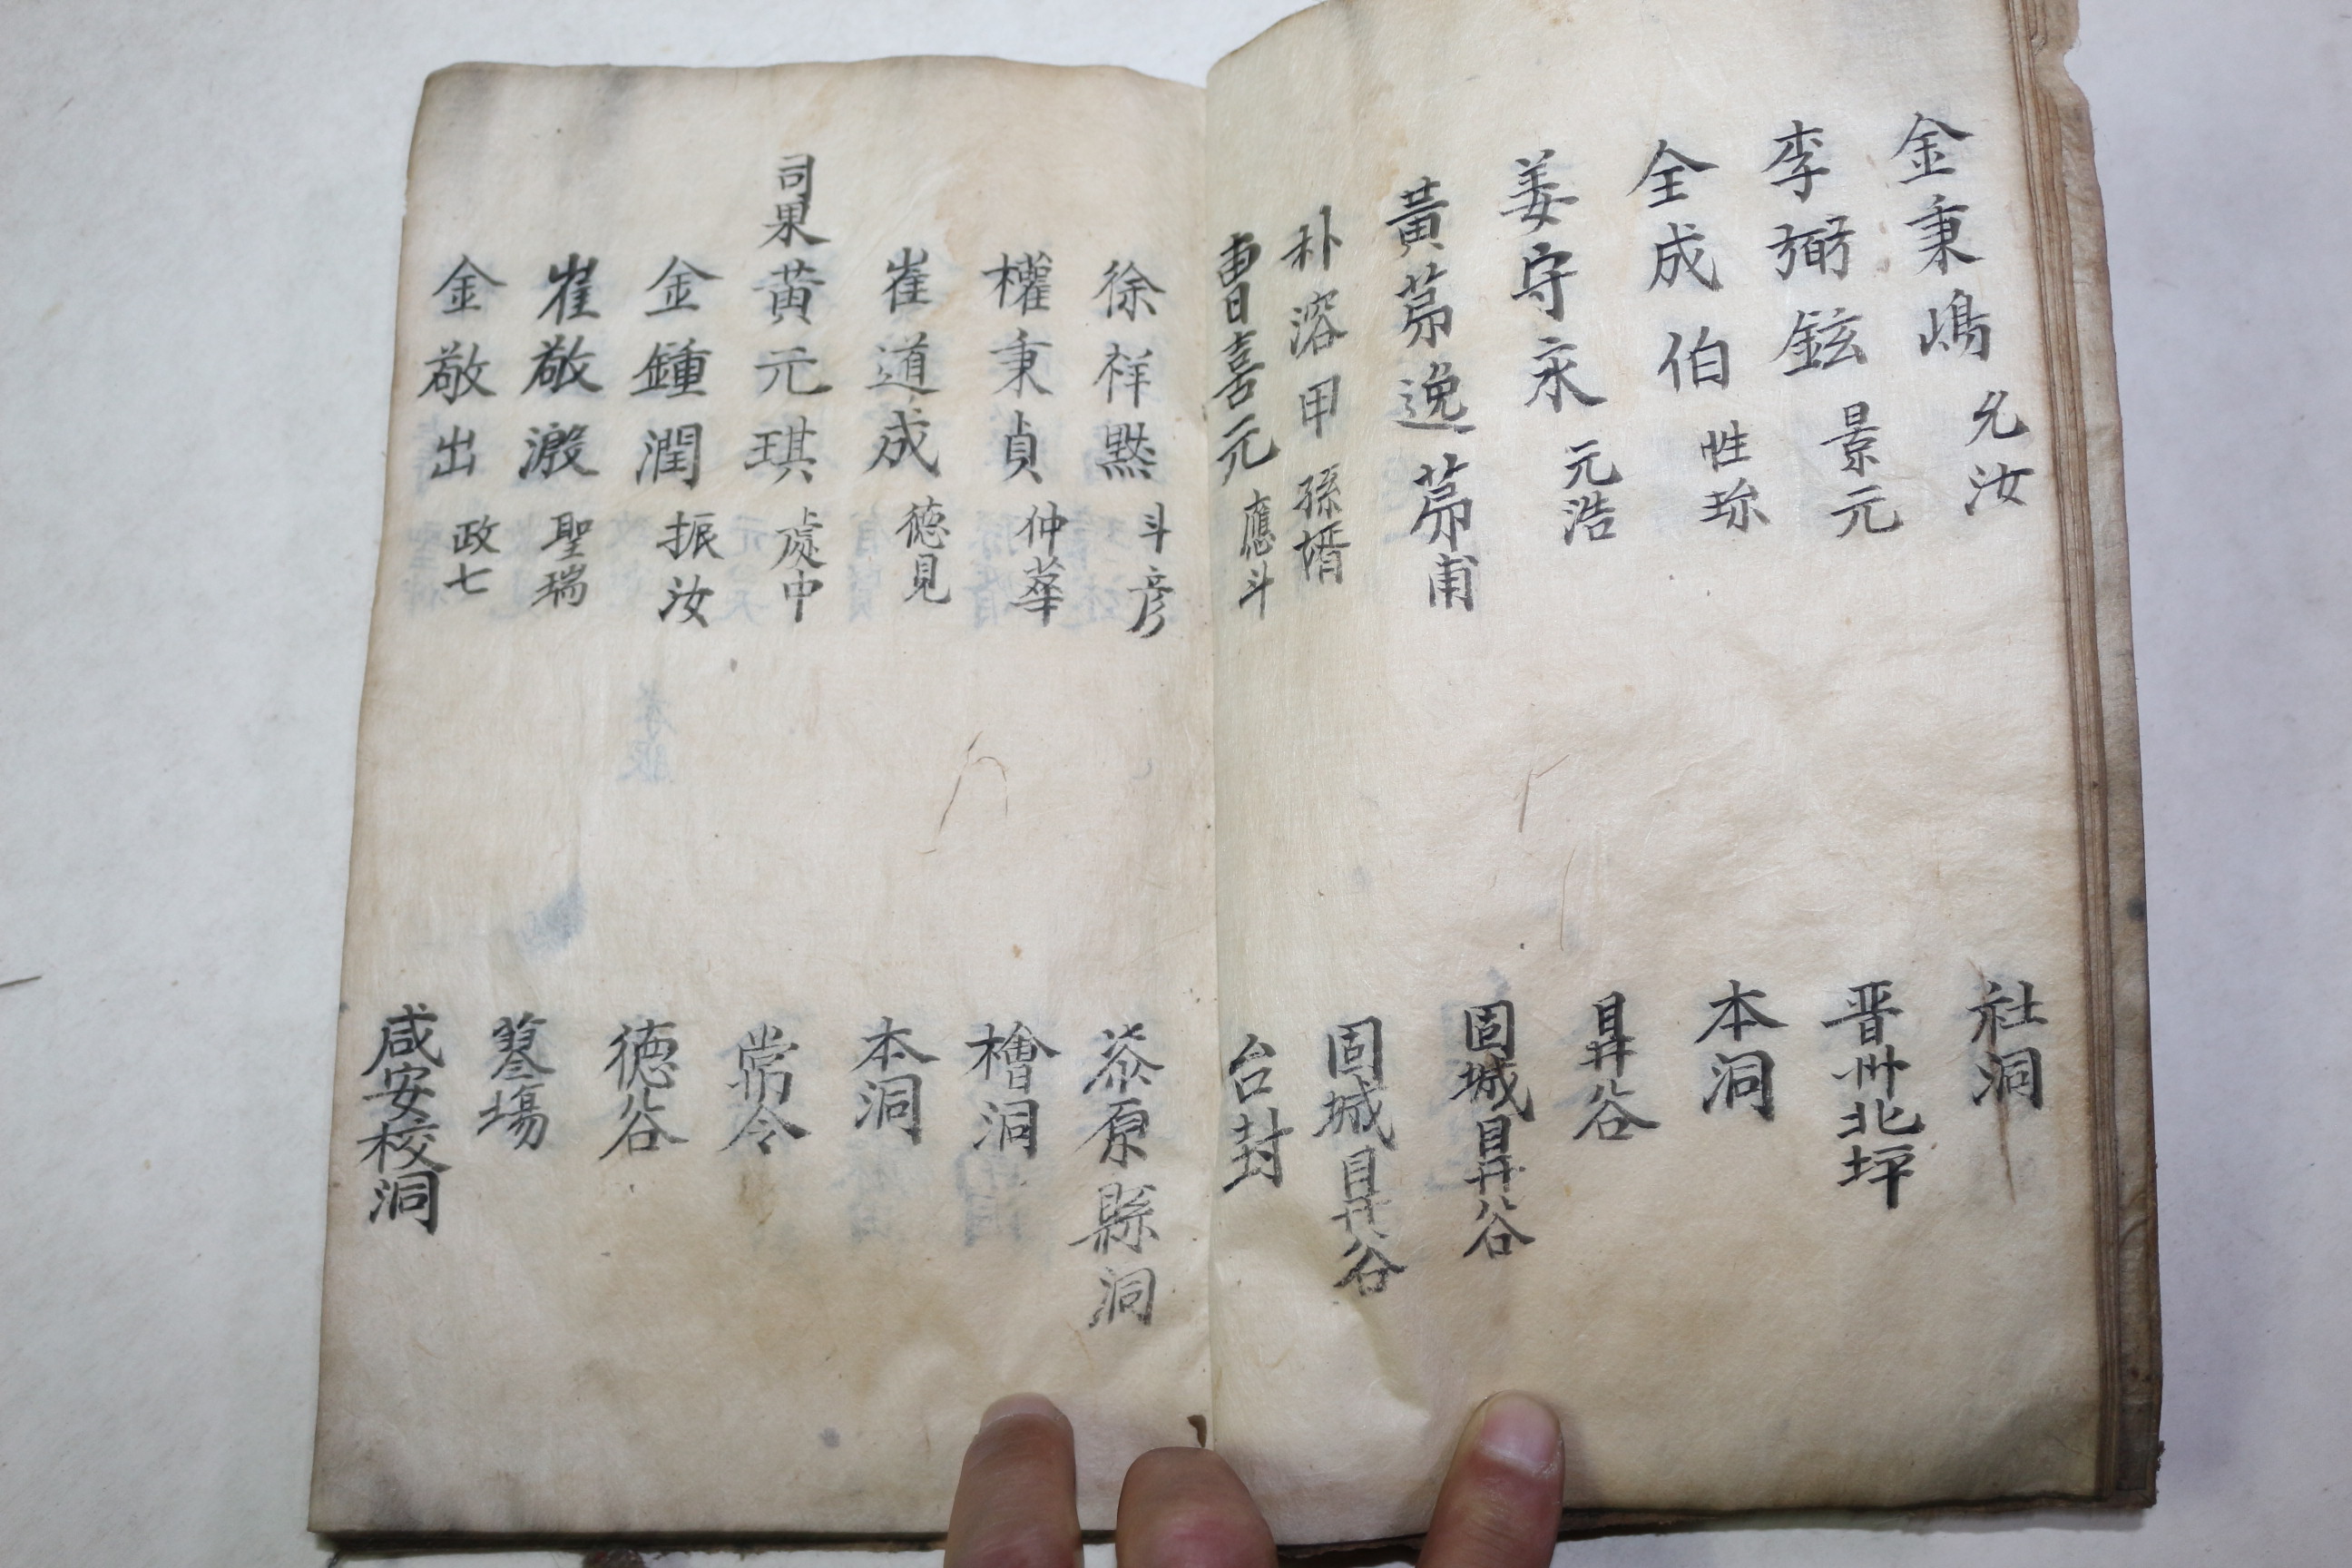 金秉㠀 允汝 社洞
李弼鉉 景元 晋州北坪
全成伯 性珎 本洞
姜守永 元浩 昇谷
黃昻逸 昻甫 固城昇谷
朴溶甲 孫壻 固城昇谷
曺喜元 應斗 台封
徐祥黙 斗彦 茶原縣洞
權秉貞 仲華 檜洞
崔道成 德見 本洞
司果 黃元琪 處中 常令
金鍾潤 振汝 德谷
崔敬激 聖瑞 墓場
金敬出 政七 咸安校洞